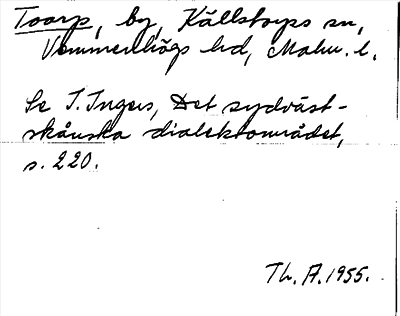 Toarp, by, Källstorps sn,
Vemmenhögs hd, Malm. l.
Se I. Ingers, Det sydväst-
skånska dialektområdet,
s. 220.
Th. A. 1955.